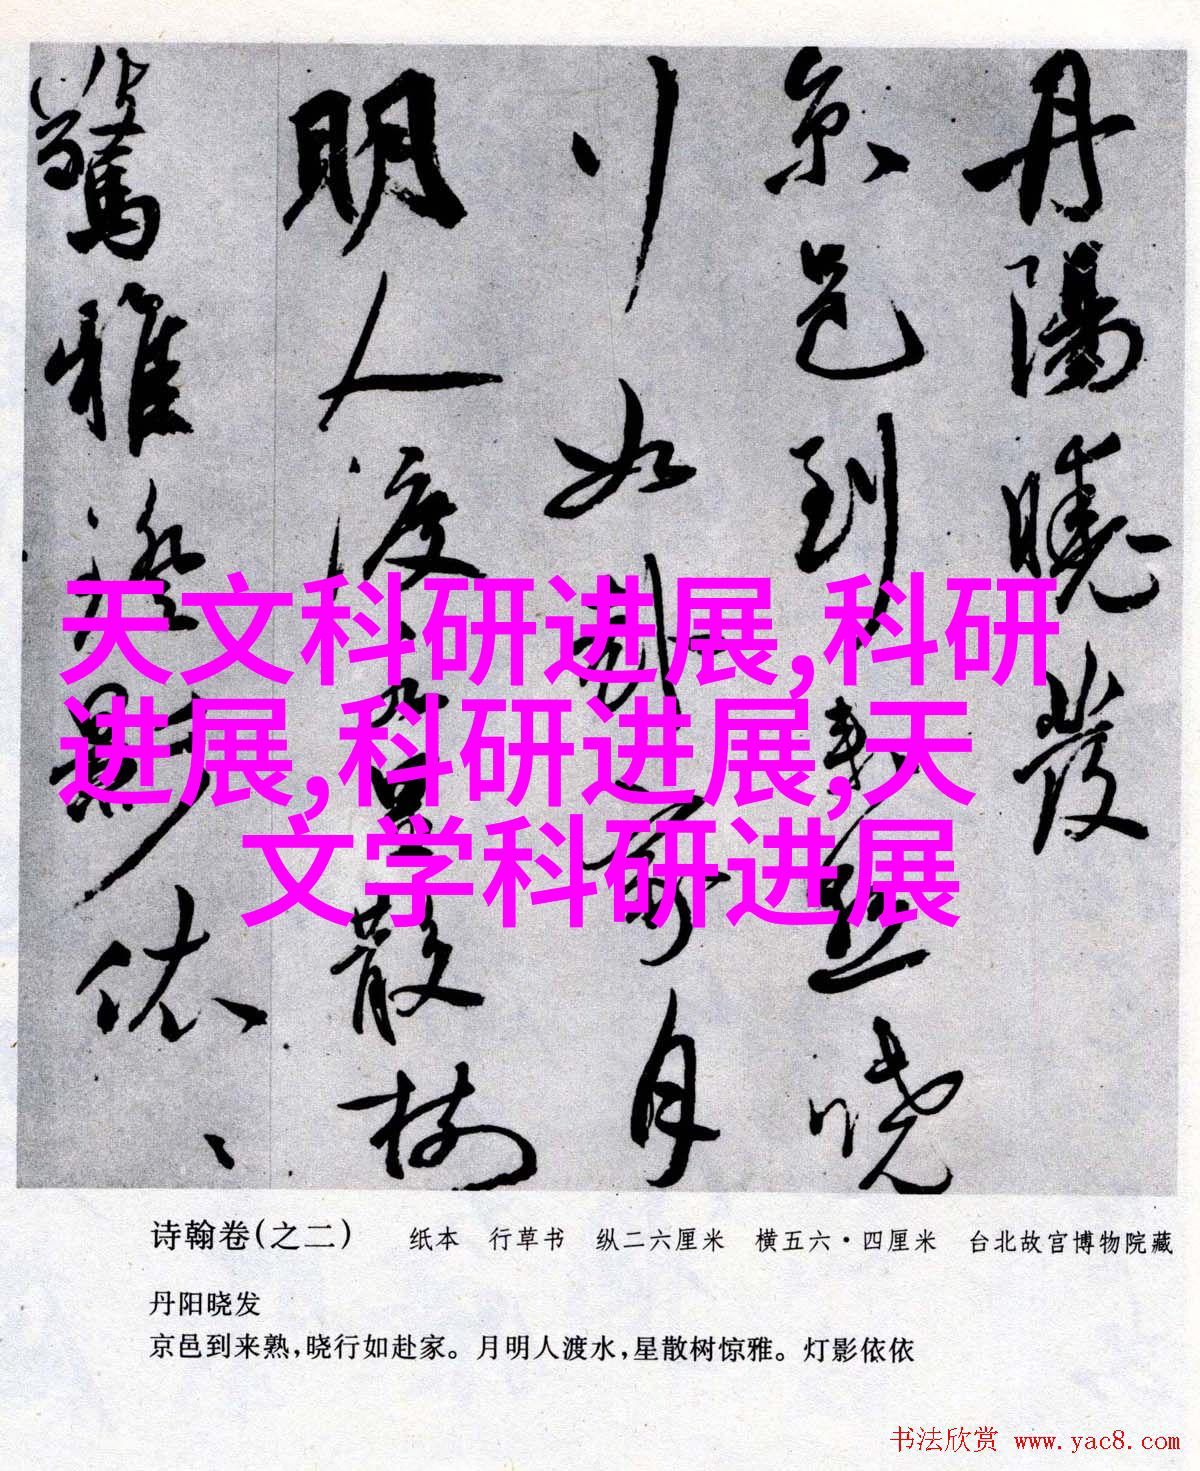 丹陽曉發
京邑到来熟曉
行如赴家月
明人渡水星散樹
驚雅燈影依、、
天文科研进展,科研
进展,科研进展,天
文学科研进展
诗翰卷(之二) 纸本 行草书 纵二六厘米 横五六·四厘米 台北故宫博物院藏
丹阳晓发
京邑到来熟,晓行如赴家。月明人渡水,星散树惊雅。灯影依依
书法欣赏 www.yac8.com